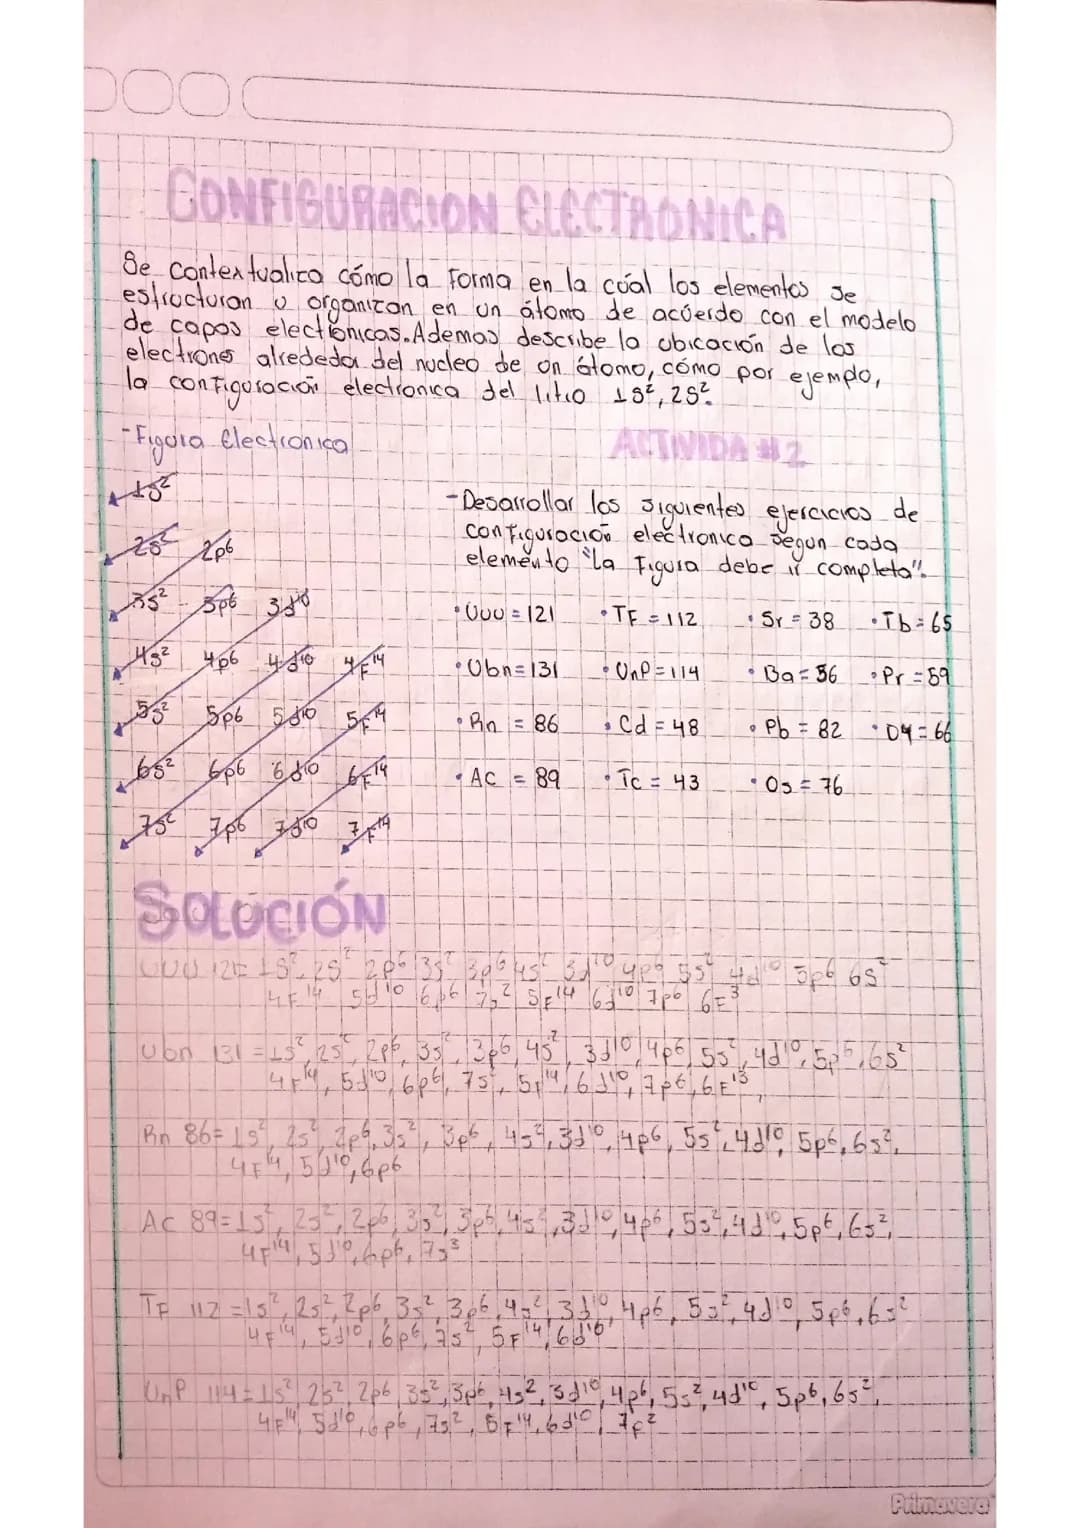 CONFIGURACION ELECTRONICA
Se contextualiza cómo la forma en la cúal los elementos se
estructuran u organizan en un átomo de acúerdo con el modelo
de capas electronicas. Ademas describe la ubicación de los
electrones alrededor del nucleo de un átomo, cómo por ejempo,
la configuración electronica del litio 1s², 2s².
-Figura Electronica
ACTIVIDA #2
1s²
2s² 2p6
3s² 3p6 3d10
4s² 4p6 4d10 4F14
5s² 5p6 5d10 5F14
6s² 6p6 6d10 6F14
7s² 7p6 7d10 7F14
-Desarrollar los siguientes ejercicios de
configuración electronica segun cada
elemento "la figura debe ir completa".
•Uuu = 121 •TF = 112 •Sr = 38 •Tb = 65
•Ubn = 131 •UnP = 114 •Ba = 56 •Pr = 59
•Rn = 86 •Cd = 48 •Pb = 82 •DY = 66
•AC = 89 •Tc = 43 •Os = 76
SOLUCIÓN
UUU 121= 1S², 2S² 2p6 3s² 3p6 4s² 3d10 4p6 5s² 4d10 5p6 6s²
4F14 5d10 6p6 7s² 5F14 6d10 7p6 6F3
Ubn 131 = 1s², 2s², 2p6, 3s², 3p6, 4s², 3d10, 4p6, 5s², 4d10, 5p6, 6s²
4F14, 5d10, 6p6, 7s², 5F14, 6d10, 7p6, 6F13,
Rn 86= 1s², 2s², 2p6, 3s², 3p6, 4s², 3d10, 4p6, 5s², 4d10, 5p6, 6s²,
4F14, 5d10, 6p6
AC 89= 1s², 2s², 2p6, 3s², 3p6, 4s², 3d10, 4p6, 5s², 4d10, 5p6, 6s²,
4F14, 5d10, 6p6, 7s3
TF 112 = 1s², 2s², 2p6, 3s², 3p6, 4s², 3d10, 4p6, 5s², 4d10, 5p6, 6s²
4F14, 5d10, 6p6, 7s², 5F14, 6d10
UnP 114 = 1s², 2s², 2p6, 3s², 3p6, 4s², 3d10, 4p6, 5s², 4d10, 5p6, 6s²,
4F14, 5d10, 6p6, 7s², 5F14, 6d10, 7F²
Primavera